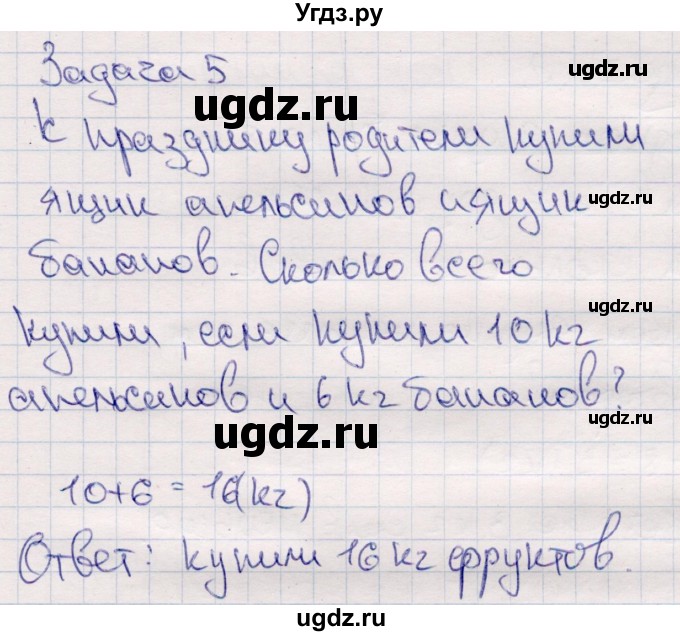 Угдз.ру
Задача 5
ugdz.ru
ugdz.ru
К празднику родители купили
ugdz.ru
ящик апельсинов и ящик
ugdz.ru
бананов. Сколько всего
купили, если купили 10 кг
ugdz.ru
апельсинов и 6 кг бананов?
ugdz.ru
ugdz.ru
10+6 = 16(кг)
ugdz.ru
Ответ: купили 16 кг фруктов.
ugdz.ru
ugdz.ru